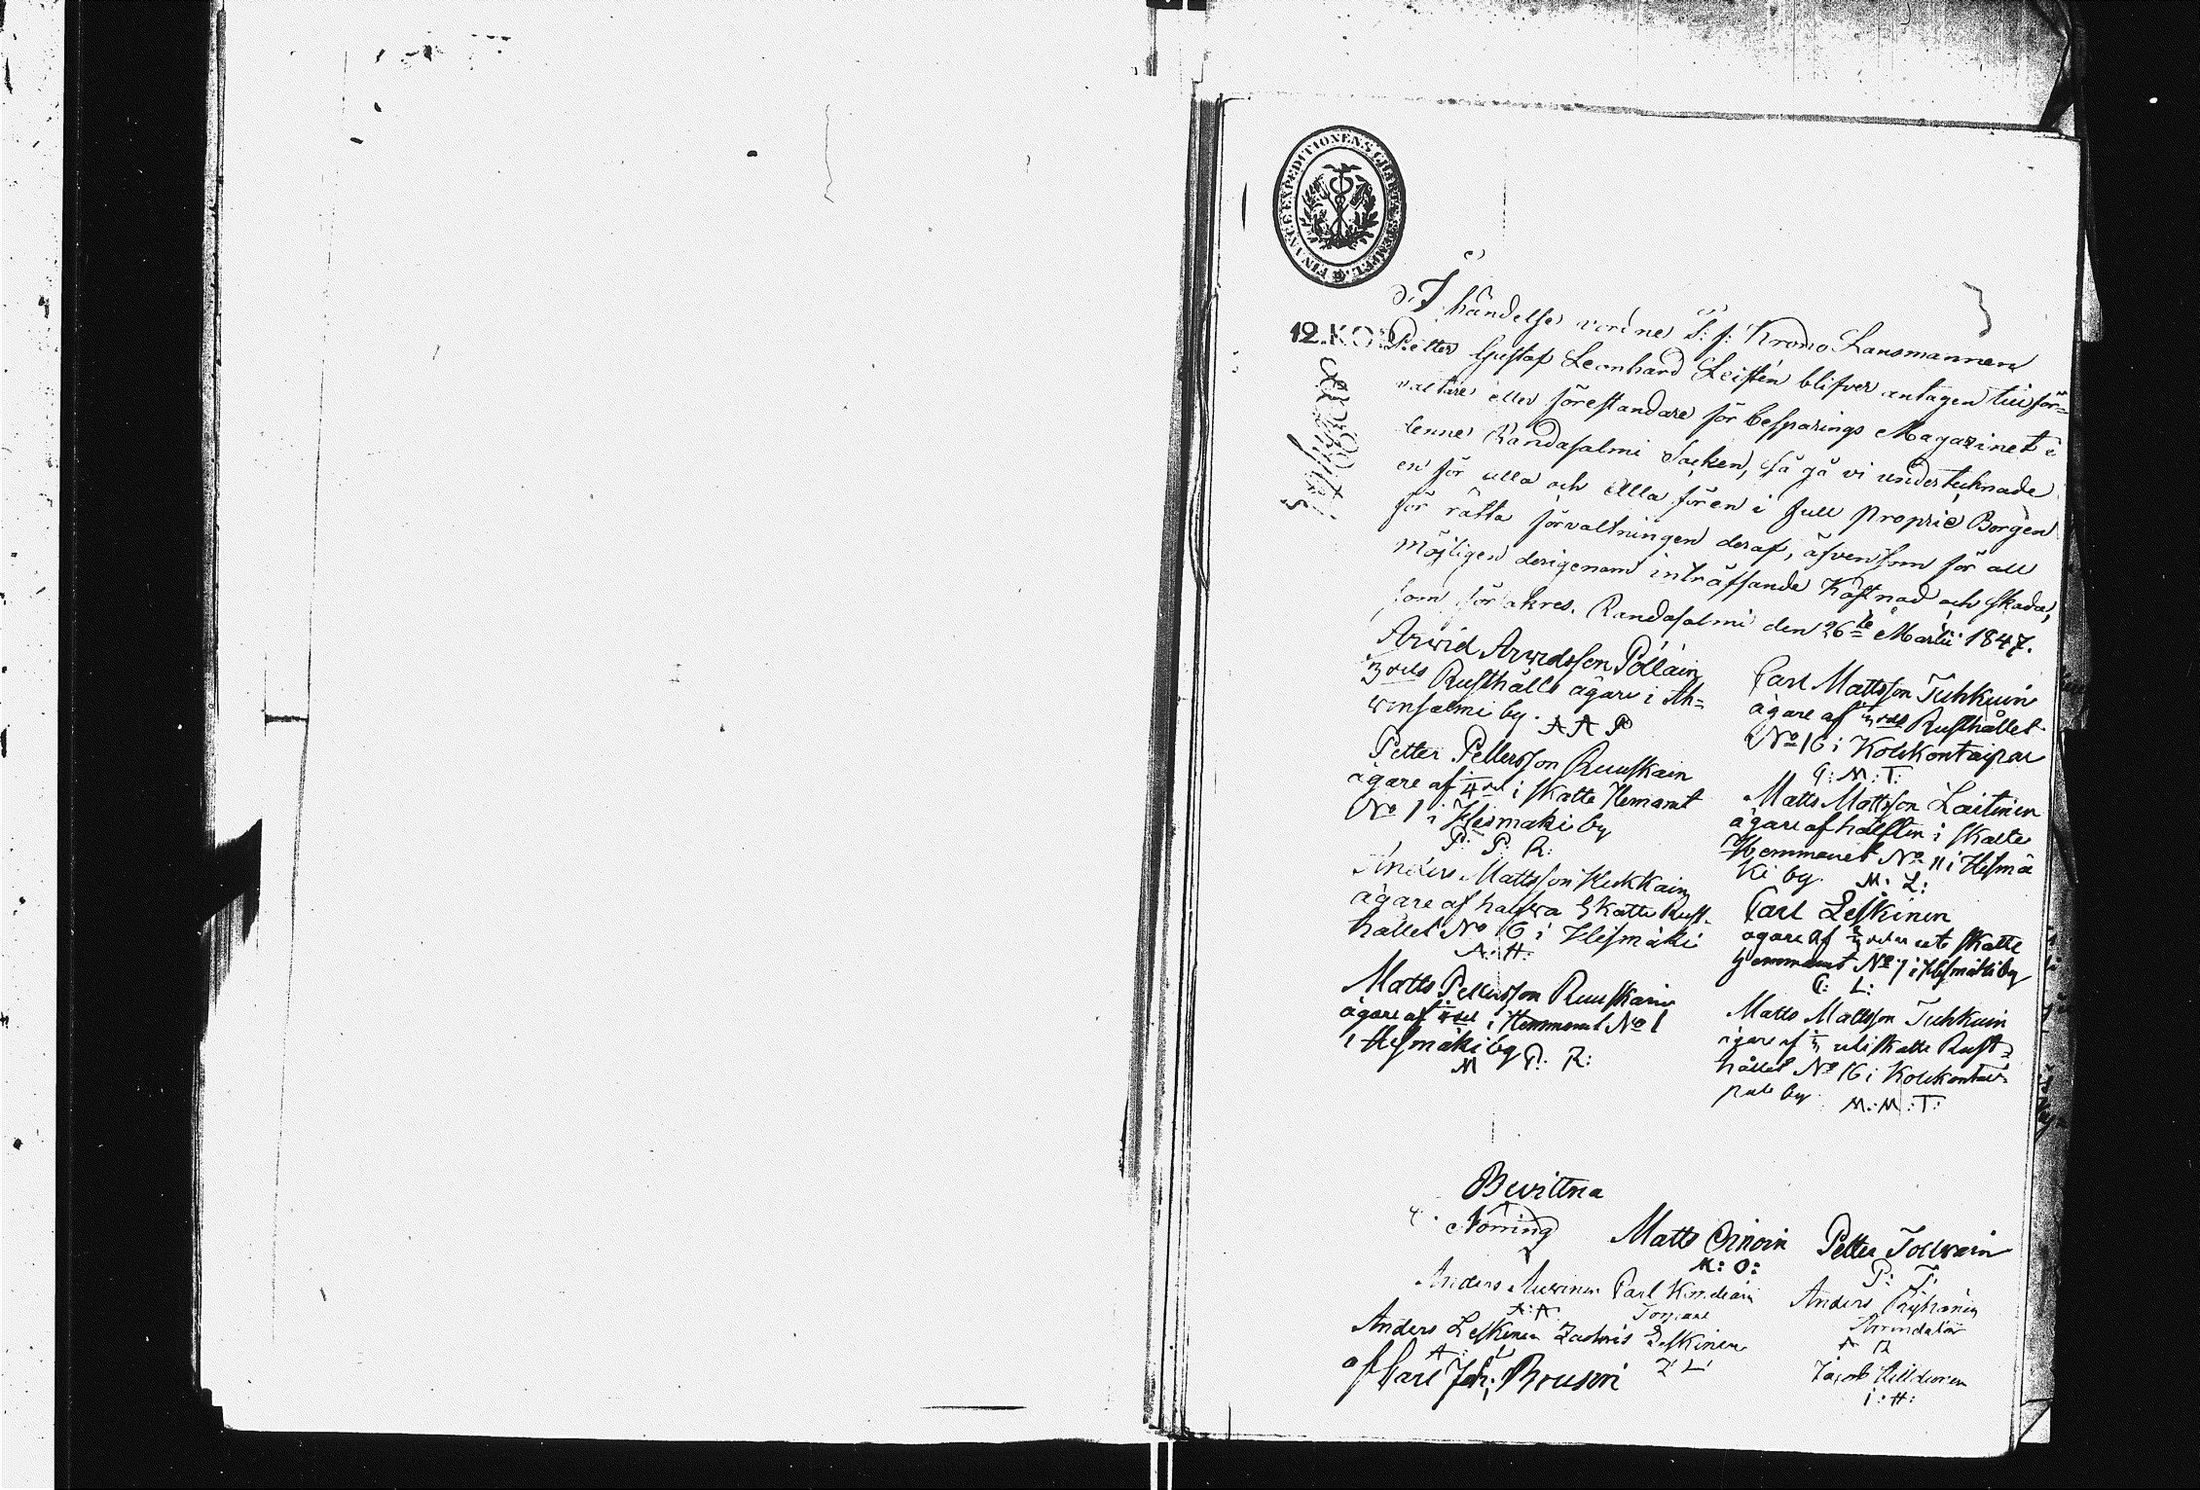 FINANCE EXPEDITIONENS CHARTÆ STEMPEL
12. KO
I händelse S. f. Krono Länsmannen
Petter Gustaf Leonhard Leistén blifver antagen till för=
valtare eller föreståndare för besparings Magazinet i
denne Randasalmi Socken, så gå vi undertecknade
en för alla och Alla för en i full proprie Borgen
för rätta förvaltningen deraf, äfvensom för all
möjligen derigenom inträffande Kostnad och skada,
som försäkres. Randasalmi den 26te Martii 1847.
Arwid Arwidsson Pölläin
Rusthålls ägare i Ah=
wensalmi by. A A P
Petter Pettersson Ruuskain
ägare af 1/4 del i skatte Hemmanet
No 1 i Hesmäki by
P: P: R:
Anders Mattsson Hukkain
ägare af halfwa Skatte Rust=
hållet No 6 i Hesmäki
A: H:
Matts Pettersson Ruuskain
ägare af 1/4 del i Hemmanet No 1
i Hesmäki by
M P: R:
Carl Mattsson Tuhkuin
ägare af Rusthållet
No 16 i Kolkontaipal
C: M: T:
Matts Mattsson Laitinen
ägare af hälften i Skatte
Hemmanet No 11 i Hesmä
ki by. M: L:
Carl Leskinen
ägare af skatte
Hemmanet No 7 i Hesmäki by
C: L:
Matts Mattsson Tuhkuin
ägare af skatte Rust=
hållet No 16 i Kolkontai
pale by M: M: T:
Bevittna
Norring Matts Oinoin Petter Tollwain
M: O: P: T:
Anders Auvinen Carl Anders
A: A:
Anders Leskinen Zachris Leskinen
A: L Z L
af Carl Joh: Brusin Jacob
I: H: